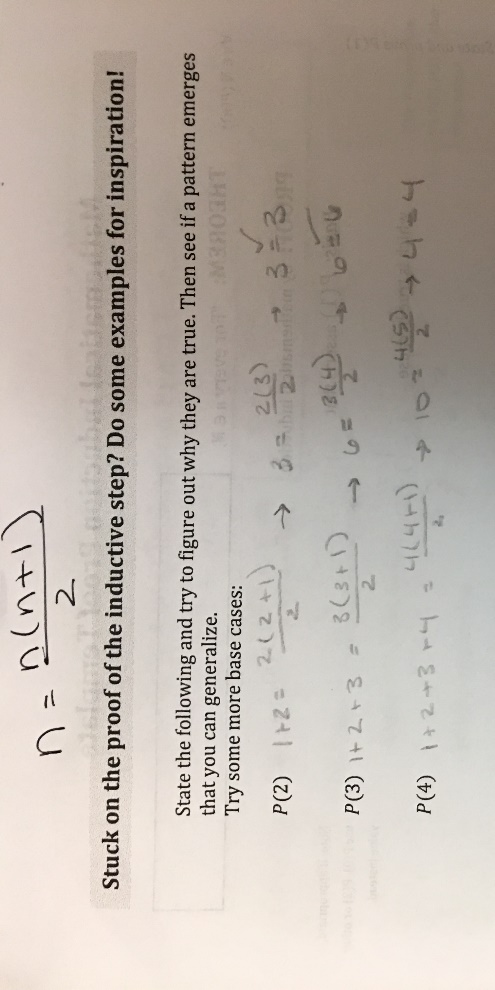 n = n(n+1)/2
Stuck on the proof of the inductive step? Do some examples for inspiration!
State the following and try to figure out why they are true. Then see if a pattern emerges
that you can generalize.
Try some more base cases:
P(2) 1+2 = 2(2+1)/2 → 3 = 2(3)/2 → 3 = 3 ✓
P(3) 1+2+3 = 3(3+1)/2 → 6 = 3(4)/2 → 6 = 6 ✓
P(4) 1+2+3+4 = 4(4+1)/2 → 10 = 4(5)/2 → 4 = 4